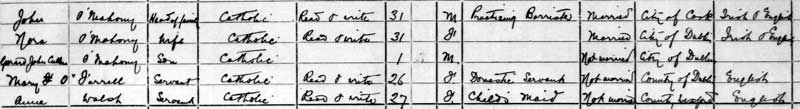 John O'Mahony Head of family Catholic Read & write 31 M Practising Barrister Married City of Cork Irish & English
Nora O'Mahony Wife Catholic Read & write 31 F Married City of Dublin Irish & English
Gerard John Cullen O'Mahony Son Catholic 1 M Not married City of Dublin
Mary F O'Farrell Servant Catholic Read & write 26 F Domestic Servant Not married County of Dublin English
Anne Walsh Servant Catholic Read & write 27 F Childs Maid Not married County Wexford English